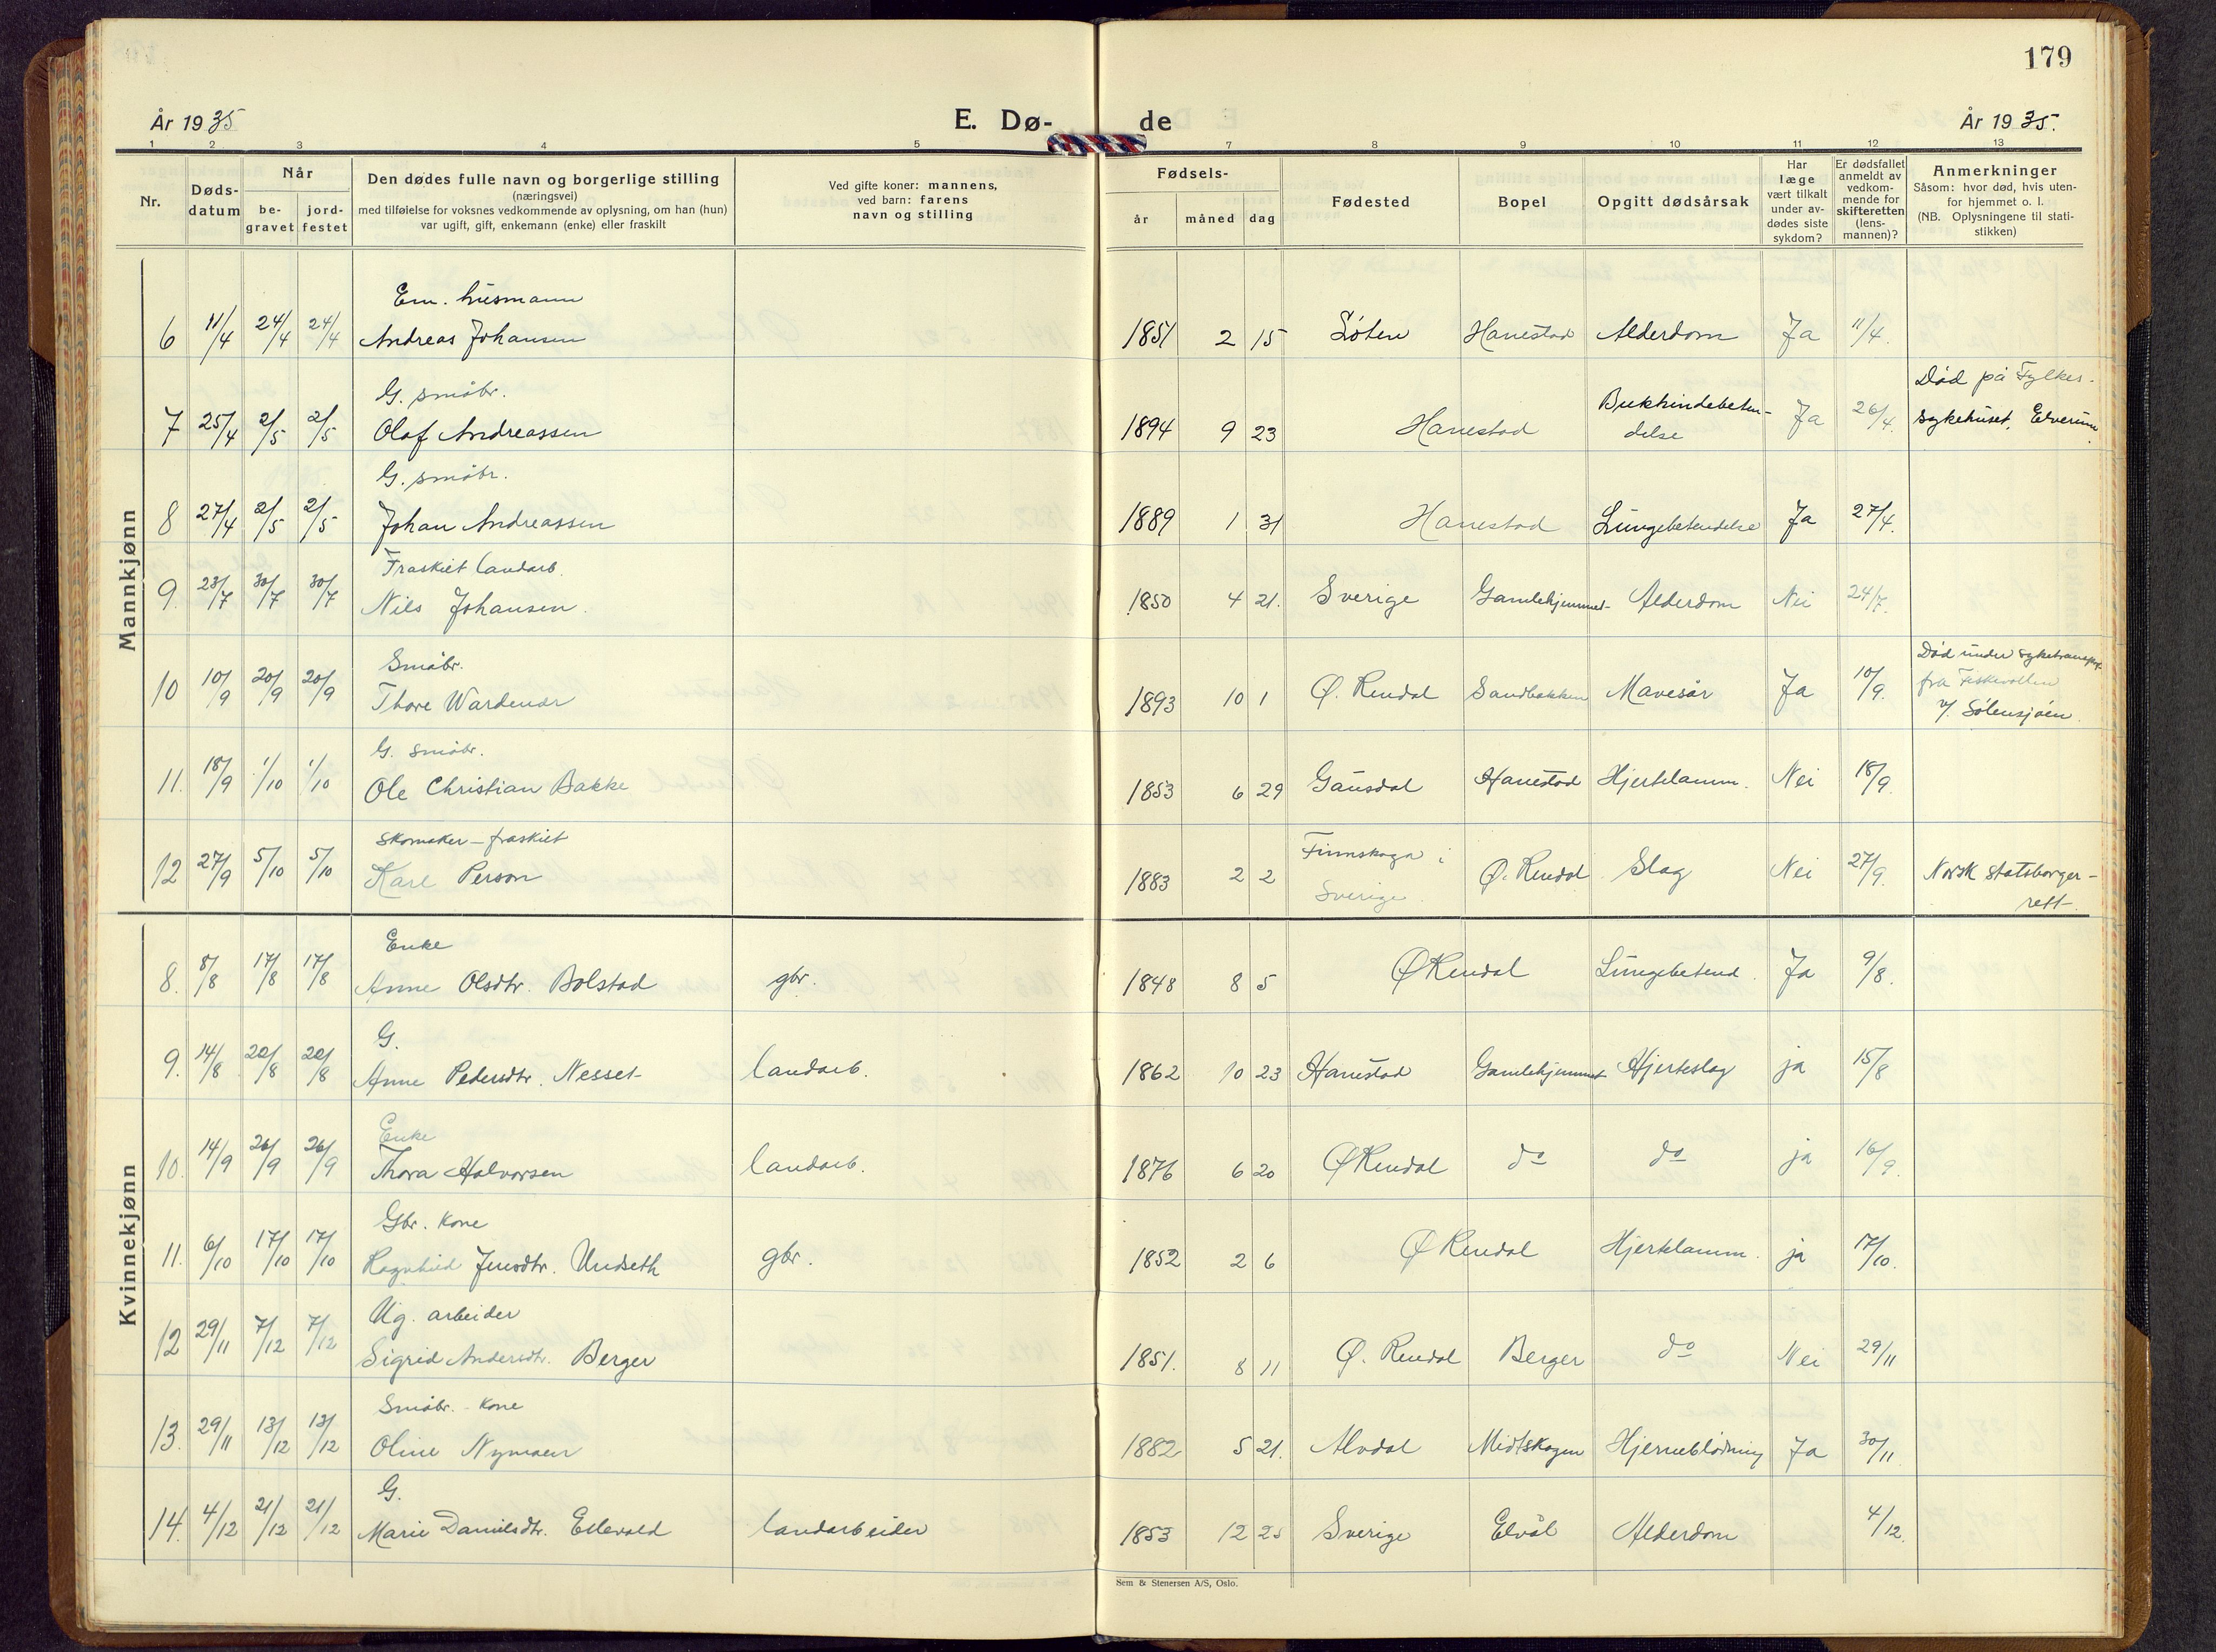 179
År 1935
E. Dø-
de
År 1935.
1 2 3 4 5 7 8 9 10 11 12 13
Nr.
Døds-
datum
Når
be-
gravet
jord-
festet
Den dødes fulle navn og borgerlige stilling
(næringsvei)
med tilføielse for voksnes vedkommende av oplysning, om han (hun)
var ugift, gift, enkemann (enke) eller fraskilt
Ved gifte koner: mannens,
ved barn: farens
navn og stilling
Fødsels-
år måned dag
Fødested
Bopel
Opgitt dødsårsak
Har
læge
vært tilkalt
under av-
dødes siste
sykdom?
Er dødsfallet
anmeldt av
vedkom-
mende for
skifteretten
(lens-
mannen)?
Anmerkninger
Såsom: hvor død, hvis uten-
for hjemmet o. l.
(NB. Oplysningene til stati-
stikken)
Mannkjønn
Em. husmann
6 11/4 24/4 24/4 Andreas Johansen 1851 2 15 Løten Hanestad Alderdom Ja 11/4.
G. småbr.
7 25/4 2/5 2/5 Olaf Andreassen 1894 9 23 Hanestad Bukhindebeten-
delse Ja 26/4. Død på Fylkes-
sykehuset, Elverum
G. småbr.
8 27/4 2/5 2/5 Johan Andreassen 1889 1 31 Hanestad Lungebetendelse Ja 27/4.
Fraskilt landarb.
9. 23/7 30/7 30/7 Nils Johansen. 1850 4 21. Sverige Gamlehjemmet Alderdom Nei 24/7.
Småbr.
10 10/9 20/9 20/9 Thore Wardenær 1893 10 1 Ø. Rendal Sandbakken Mavesår Ja 10/9. Død under syketransport
fra Fiskevollen
v/ Sølensjøen.
G. småbr.
11. 18/9 1/10 1/10 Ole Christian Bakke 1853 6 29 Gausdal Hanestad Hjertelamm. Nei 18/9.
Skomaker – fraskilt
12 27/9 5/10 5/10 Karl Person 1883 2 2 Finnskoga i
Sverige. Ø. Rendal Slag Nei 27/9. Norsk statsborger-
rett.
Kvinnekjønn
Enke
8. 8/8 17/8 17/8 Anne Olsdtr. Bolstad gbr. 1848 8 5 Ø Rendal Lungebetend. Ja 9/8.
G.
9. 14/8 20/8 20/8 Anne Pedersdtr. Nesset landarb. 1862 10 23 Hanestad Gamlehjemmet Hjerteslag ja 15/8
Enke
10. 14/9 26/9 26/9 Thora Halvorsen landarb. 1876 6 20 Ø Rendal do do ja 16/9.
Gbr. kone
11. 6/10 17/10 17/10 Ragnhild Jensdtr. Undseth gbr. 1852 2 6 Ø Rendal Hjertelamm. ja 17/10.
Ug. arbeider
12 29/11 7/12 7/12 Sigrid Andersdtr. Berger 1851. 8 11 Ø. Rendal Berger do Nei 29/11
Småbr. - kone
13. 29/11 13/12 13/12 Oline Nymoen 1882 5 21. Alvdal Midtskogen Hjerneblødning Ja 30/11.
G.
14. 4/12 21/12 21/12 Marie Danielsdtr. Ellevold landarbeider 1853 12 25 Sverige Elvål Alderdom 4/12.
Sem & Stenersen A/S, Oslo.